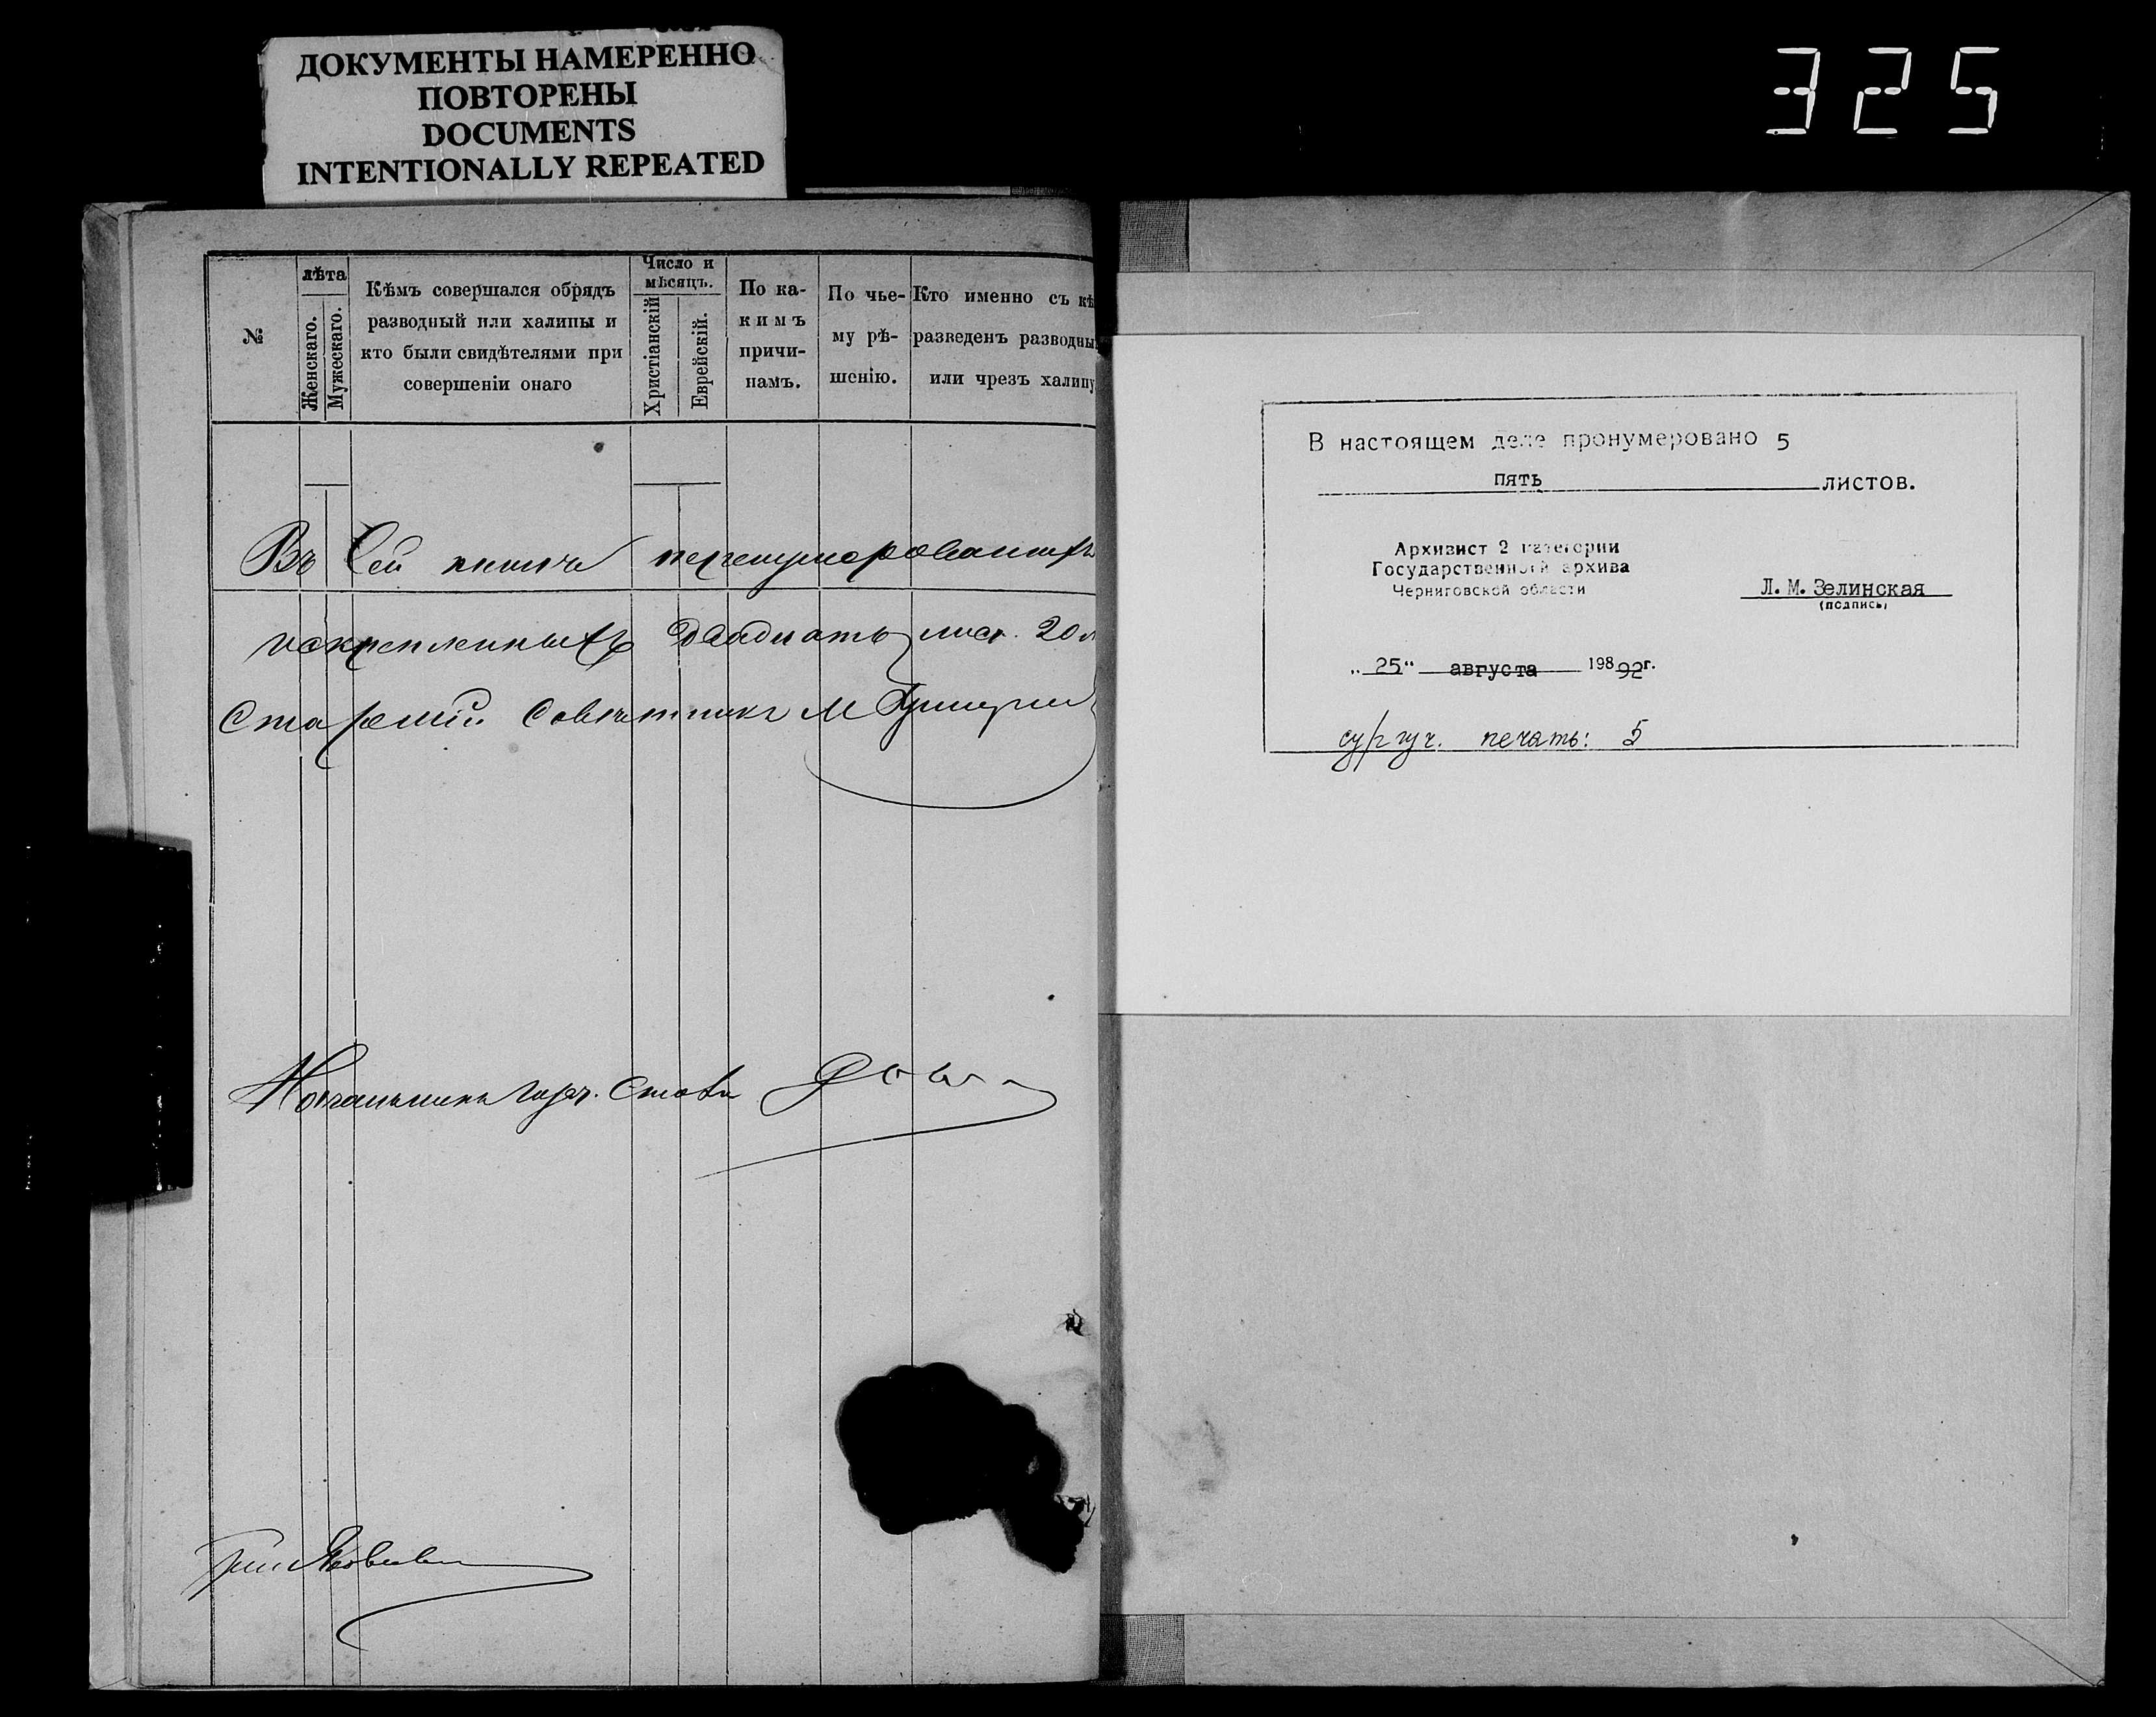 ДОКУМЕНТЫ НАМЕРЕННО
ПОВТОРЕНЫ
DOCUMENTS
INTENTIONALLY REPEATED
325
№
лѣта
Женскаго.
Мужескаго.
Кѣмъ совершался обрядъ
разводный или халицы и
кто были свидѣтелями при
совершеніи онаго
Число и
мѣсяцъ.
Христіанскій
Еврейскій.
По ка-
кимъ
причи-
намъ.
По чье-
му рѣ-
шенію.
Кто именно съ кѣ
разведенъ разводны
или чрезъ халицу
Въ сей книгѣ перенумерованныхъ
искрепленныхъ двадцать лист. 20 л
Старшій Советникъ М
Начальникъ Стола
В настоящем деле пронумеровано 5
пять листов.
Архивист 2 категории
Государственной архива
Черниговской области
Л. М. Зелинская
(подпись)
„ 25 “ августа 198 92 г.
сургуч. печать: 5